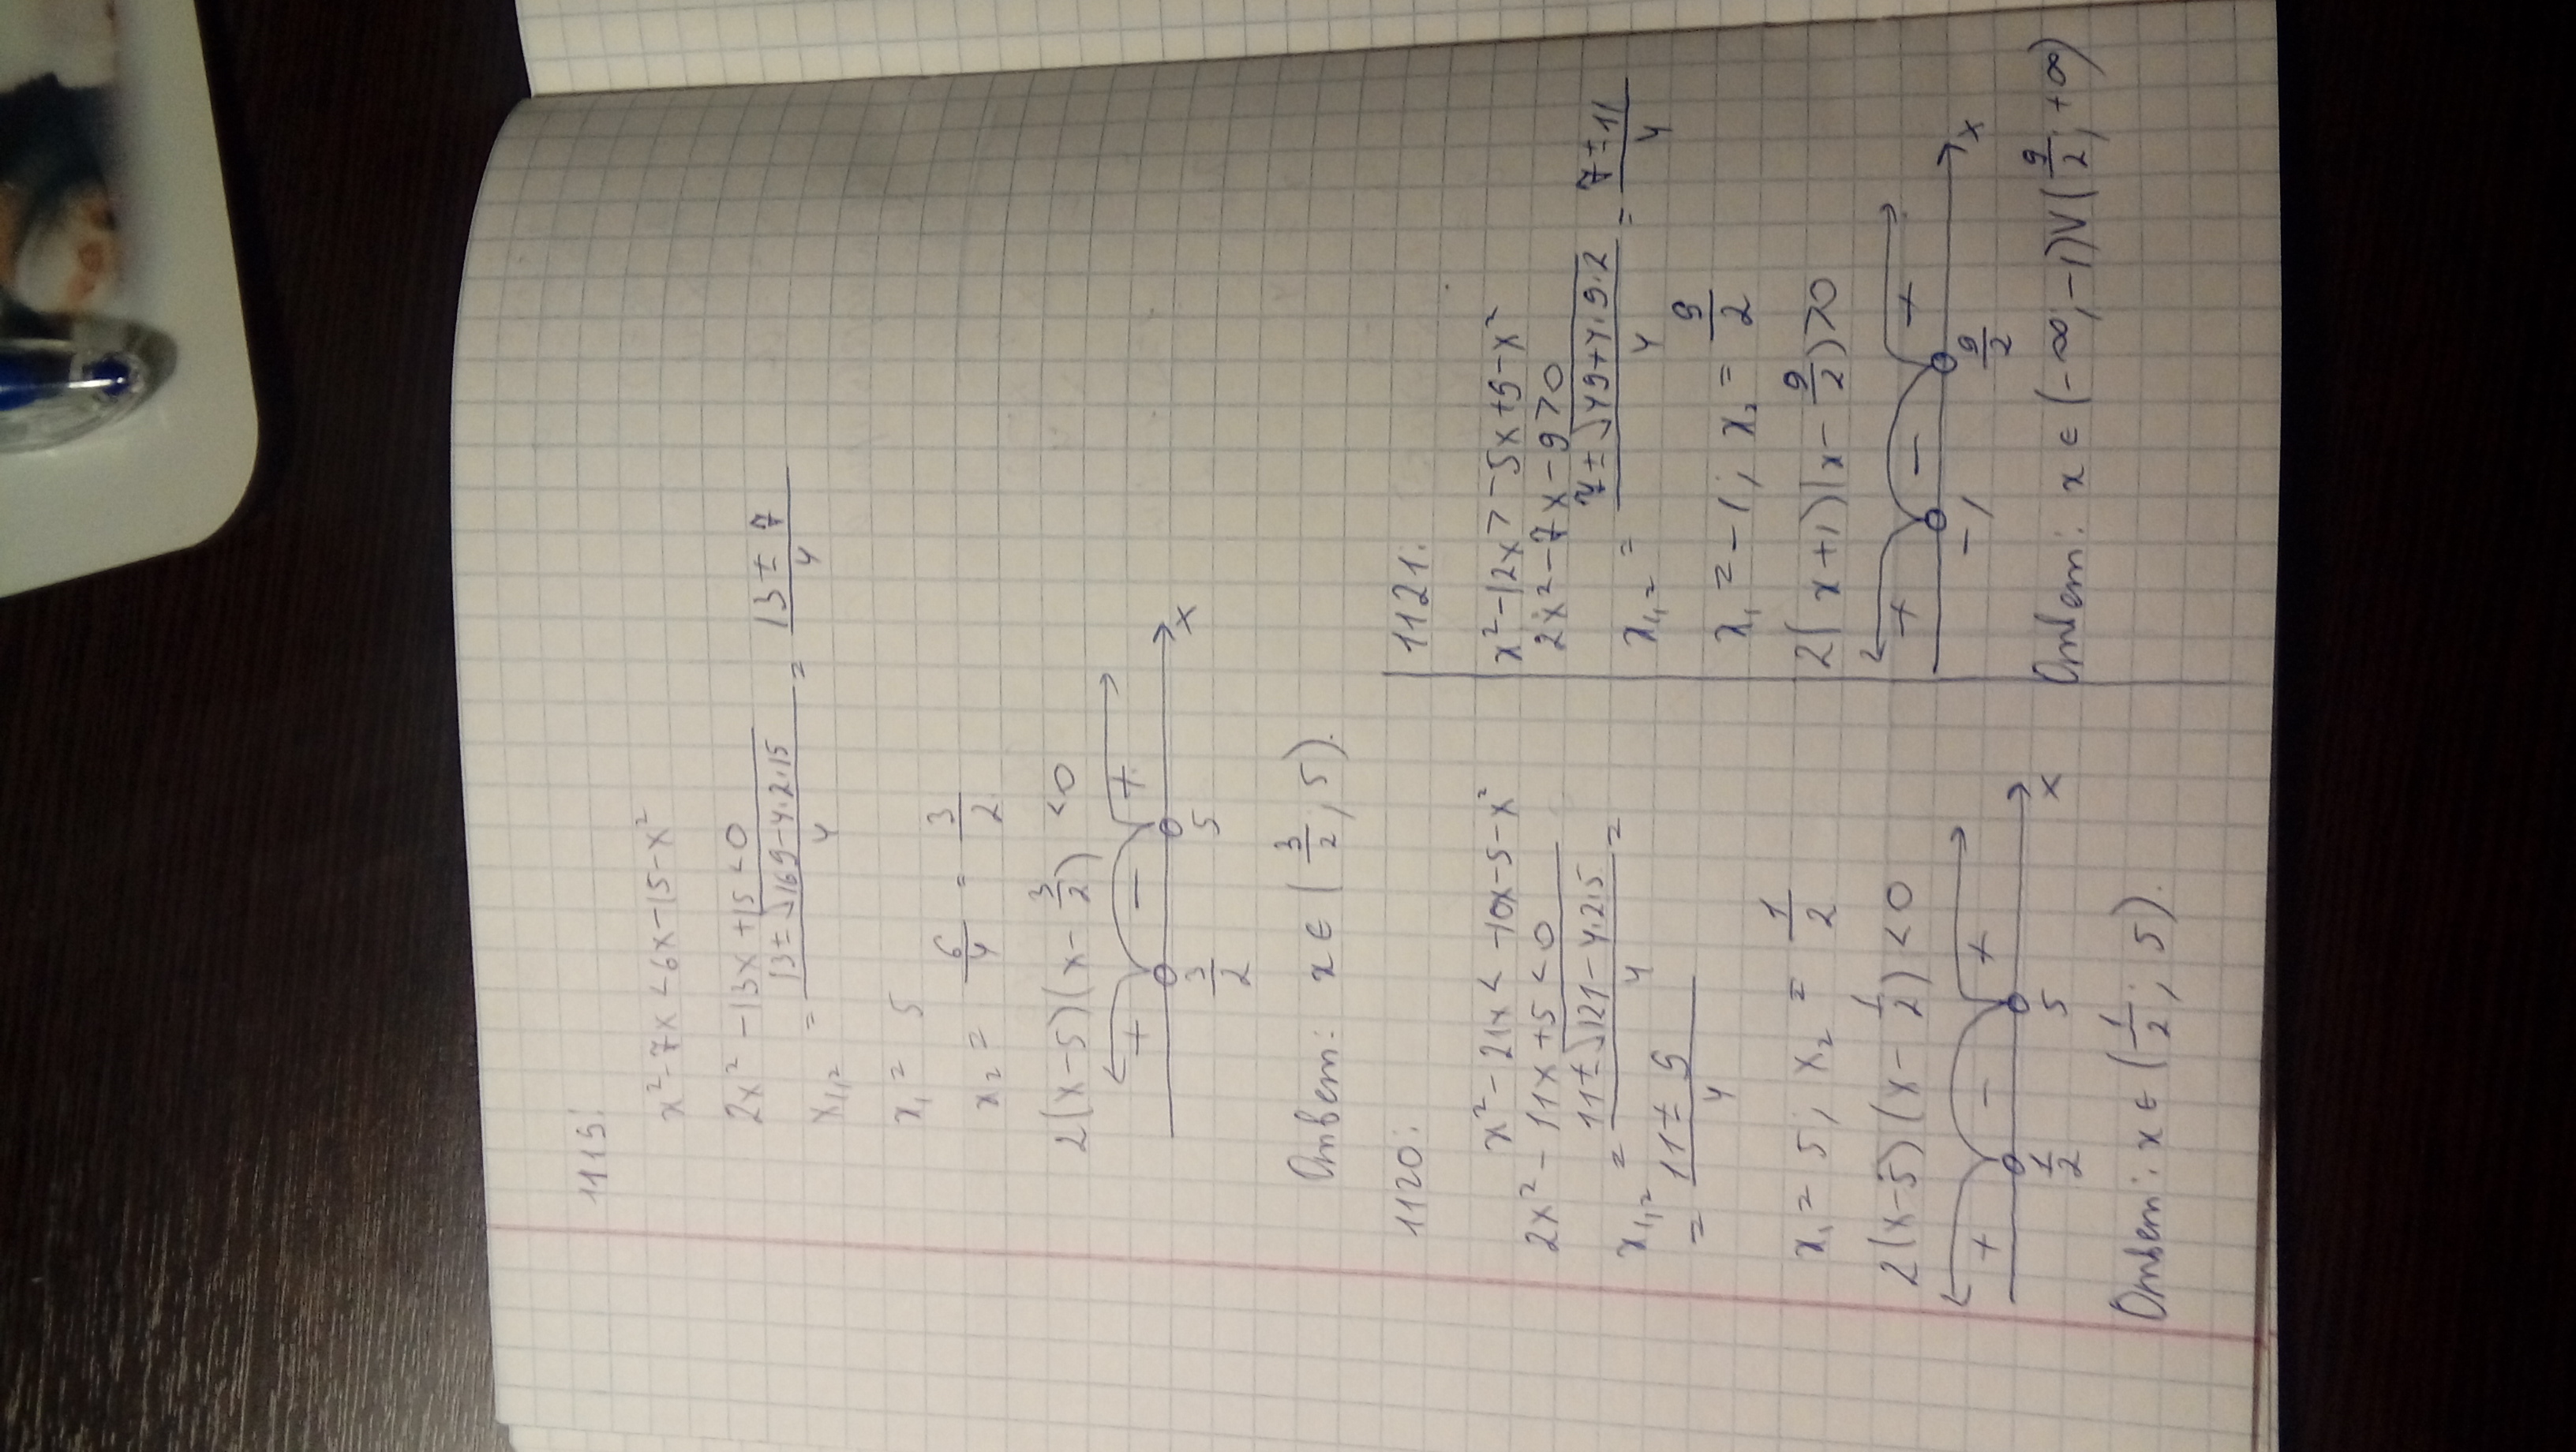 1119.
x² - 7x < 6x - 15 - x²
2x² - 13x + 15 < 0
x₁,₂ = (13 ± √(169 - 4·2·15))/4 = (13 ± 7)/4
x₁ = 5
x₂ = 6/4 = 3/2
2(x - 5)(x - 3/2) < 0
+ - + x
3/2 5
Ответ: x ∈ (3/2; 5).
1120.
x² - 21x < -10x - 5 - x²
2x² - 11x + 5 < 0
x₁,₂ = (11 ± √(121 - 4·2·5))/4 =
= (11 ± 9)/4
x₁ = 5; x₂ = 1/2
2(x - 5)(x - 1/2) < 0
+ - + x
1/2 5
Ответ: x ∈ (1/2; 5).
1121.
x² - 12x > -5x + 9 - x²
2x² - 7x - 9 > 0
x₁,₂ = (7 ± √(49 + 4·9·2))/4 = (7 ± 11)/4
x₁ = -1; x₂ = 9/2
2(x + 1)(x - 9/2) > 0
+ - + x
-1 9/2
Ответ: x ∈ (-∞; -1) V (9/2; +∞)